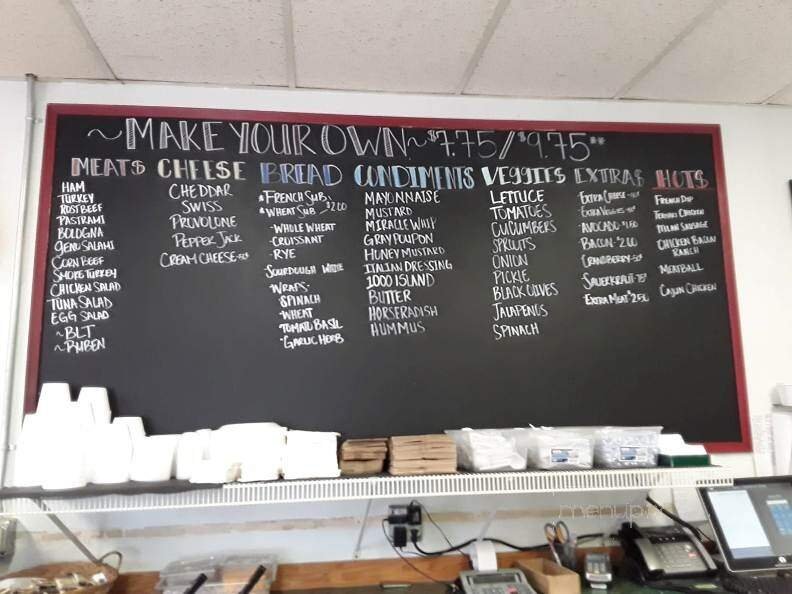 ~MAKE YOUR OWN~ $7.75/$9.75**
MEATS
HAM
TURKEY
ROSTBEEF
PASTRAMI
BOLOGNA
GENO SALAMI
CORN BEEF
SMOKE TURKEY
CHICKEN SALAD
TUNA SALAD
EGG SALAD
~BLT
~RUBEN
CHEESE
CHEDDAR
SWISS
PROVOLONE
PEPPER JACK
CREAM CHEESE
BREAD
*FRENCH SUB
*WHEAT SUB $2.00
-WHOLE WHEAT
-CROISSANT
-RYE
-SOURDOUGH WHITE
-WRAPS-
-SPINACH
-WHEAT
-TOMATO BASIL
-GARLIC HERB
CONDIMENTS
MAYONNAISE
MUSTARD
MIRACLE WHIP
GRAY POUPON
HONEY MUSTARD
ITALIAN DRESSING
1000 ISLAND
BUTTER
HORSERADISH
HUMMUS
VEGGIES
LETTUCE
TOMATOES
CUCUMBERS
SPROUTS
ONION
PICKLE
BLACK OLIVES
JALAPENOS
SPINACH
EXTRAS
EXTRA CHEESE
EXTRA VEGGIES
AVOCADO $1.50
BACON $2.00
CRANBERRY
SAUERKRAUT
EXTRA MEAT $2.50
HOTS
FRENCH DIP
TERIYAKI CHICKEN
ITALIAN SAUSAGE
CHICKEN BACON
RANCH
MEATBALL
CAJUN CHICKEN